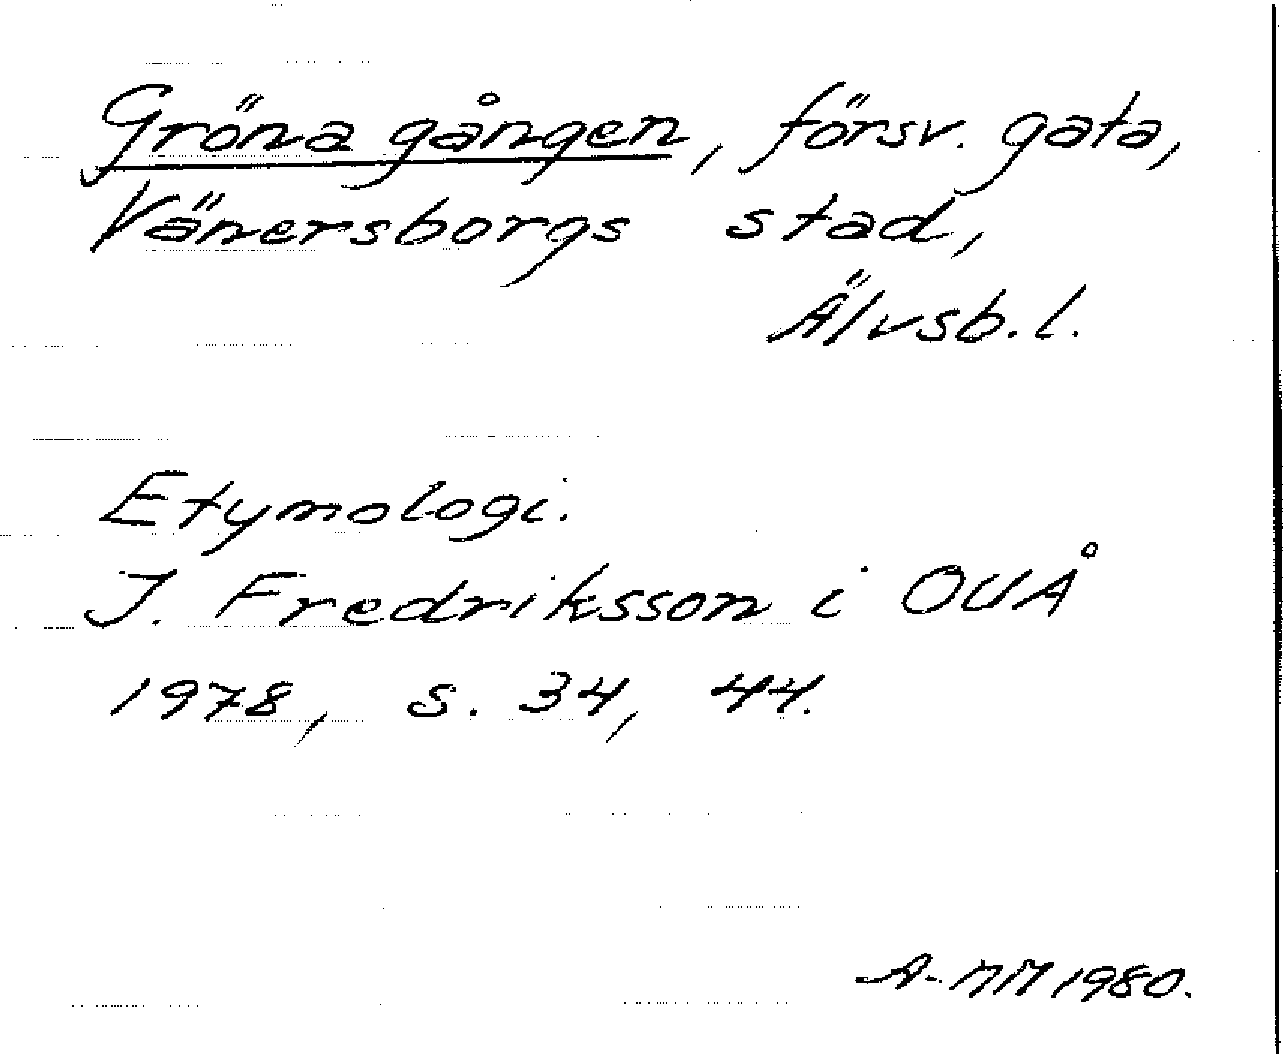 Gröna gången, försv. gata,
Vänersborgs stad,
Älvsb. l.
Etymologi.
J. Fredriksson i OUÅ
1978, s. 34, 44.
A-MM 1980.